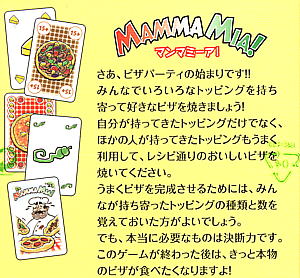 MAMMA MIA!
マンマミーア!
15+
15+
MAMMA MIA!
さあ、ピザパーティの始まりです!!
みんなでいろいろなトッピングを持ち
寄って好きなピザを焼きましょう!
自分が持ってきたトッピングだけでなく、
ほかの人が持ってきたトッピングもうまく
利用して、レシピ通りのおいしいピザを
焼いてください。
うまくピザを完成させるためには、みん
なが持ち寄ったトッピングの種類と数を
覚えておいた方がよいでしょう。
でも、本当に必要なものは決断力です。
このゲームが終わった後は、きっと本物
のピザが食べたくなりますよ!!